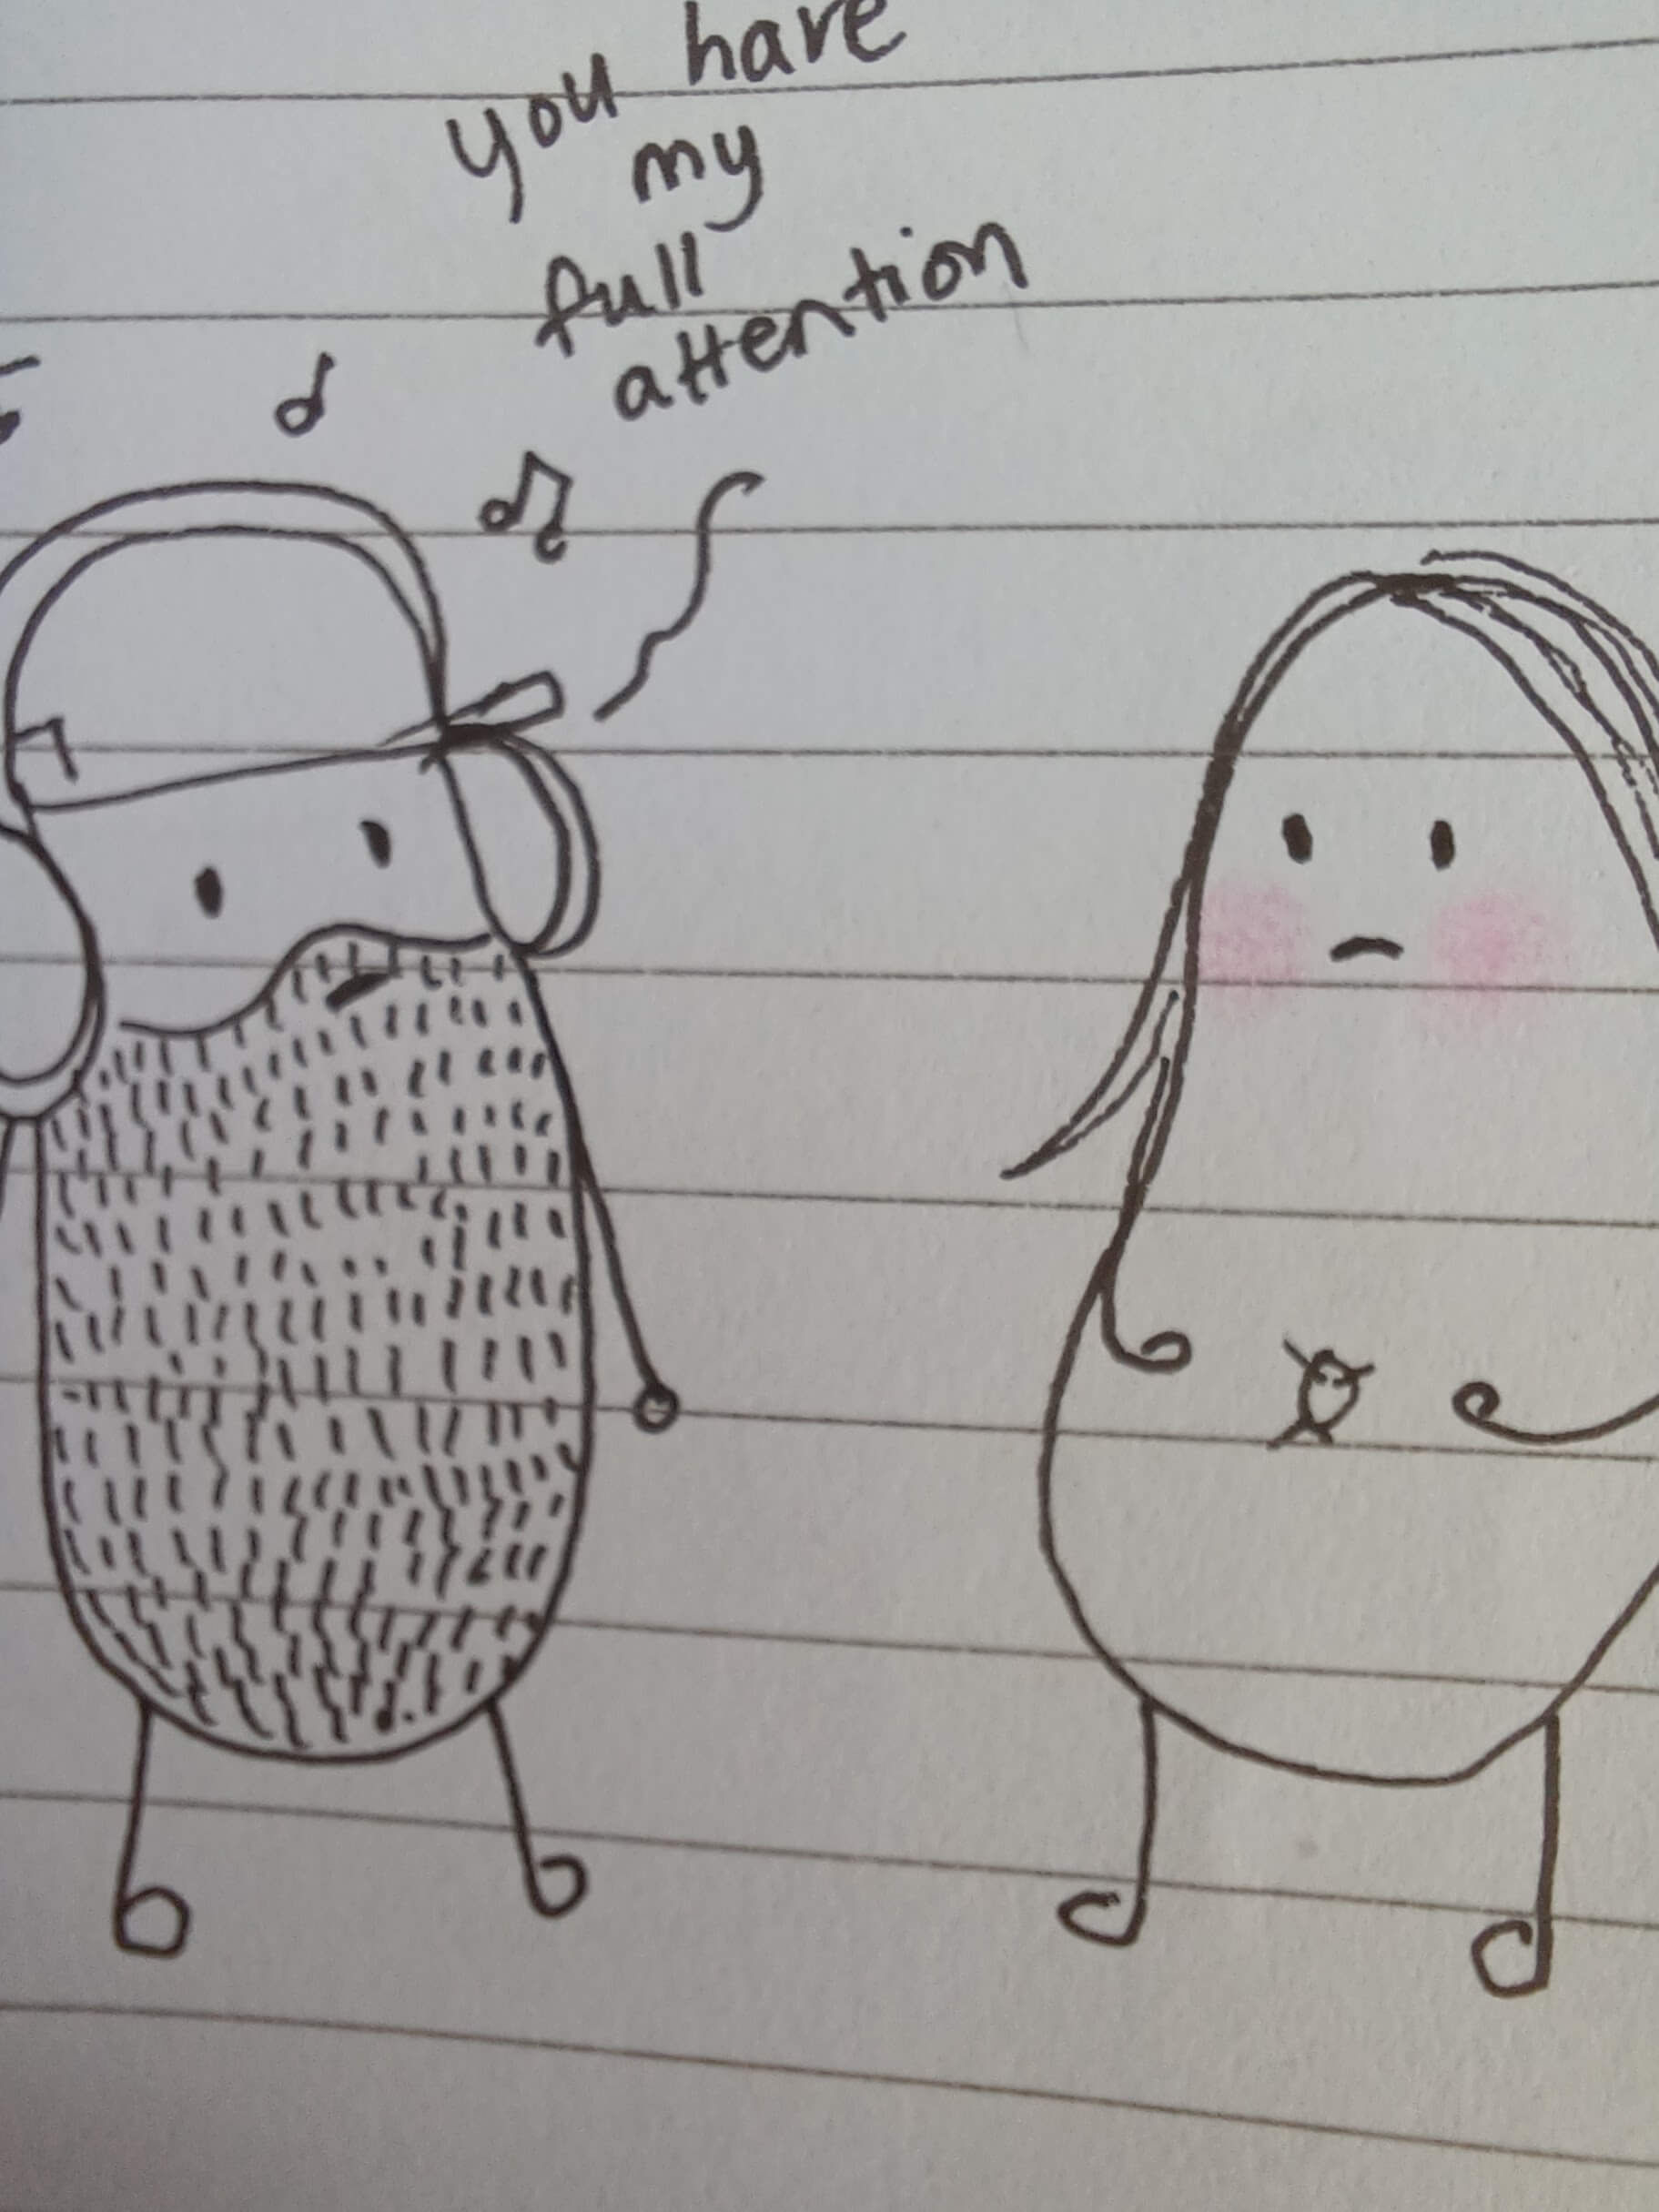 you have
my
full
attention